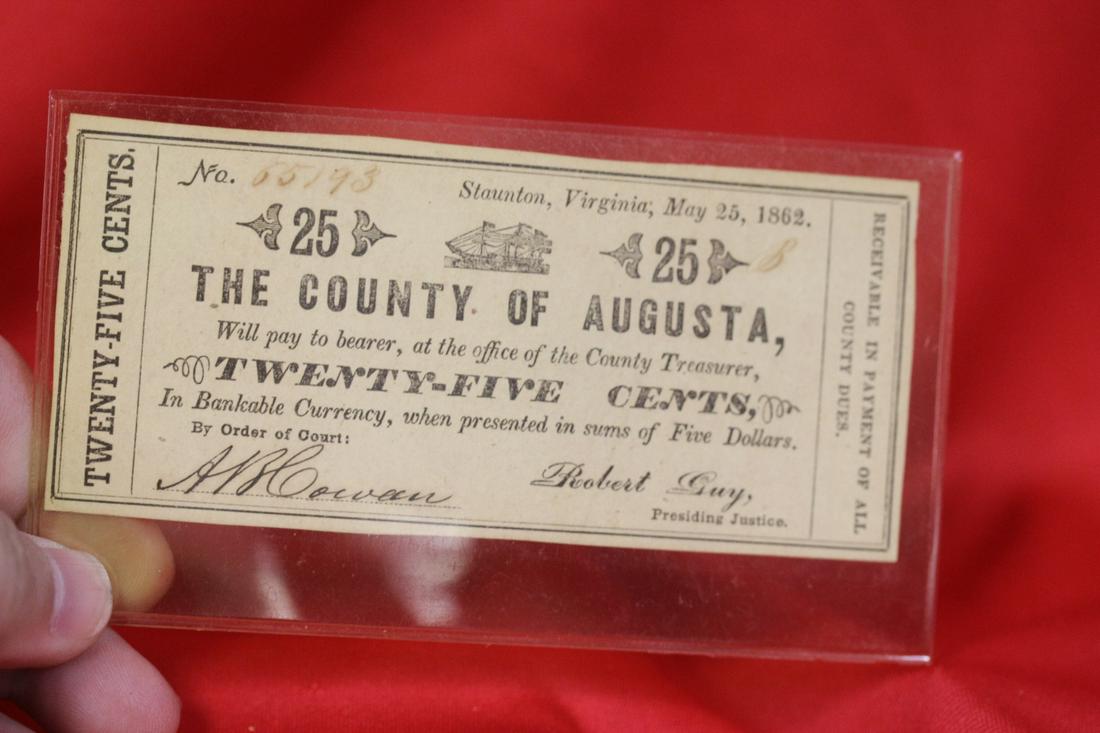 TWENTY-FIVE CENTS.
No. 65193
Staunton, Virginia, May 25, 1862.
25 25 8
THE COUNTY OF AUGUSTA,
Will pay to bearer, at the office of the County Treasurer,
TWENTY-FIVE CENTS,
In Bankable Currency, when presented in sums of Five Dollars.
By Order of Court:
A B Cowan
Robert Guy,
Presiding Justice.
RECEIVABLE IN PAYMENT OF ALL
COUNTY DUES.